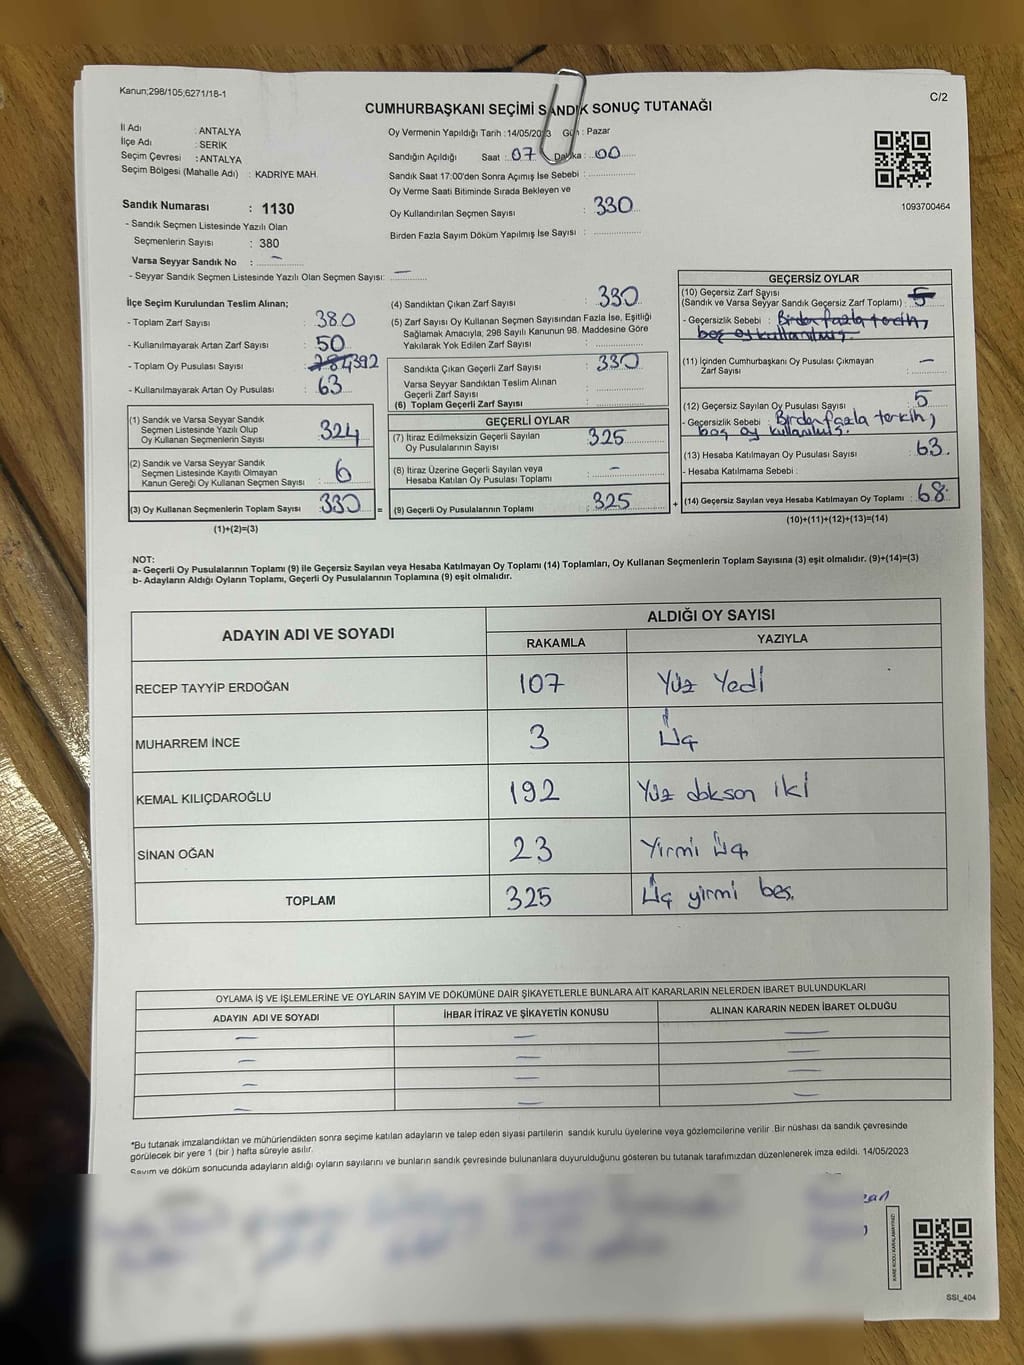 Kanun;298/105,6271/18-1
C/2
CUMHURBAŞKANI SEÇİMİ SANDIK SONUÇ TUTANAĞI
İl Adı : ANTALYA
İlçe Adı : SERİK
Seçim Çevresi : ANTALYA
Seçim Bölgesi (Mahalle Adı) : KADRİYE MAH.
Sandık Numarası : 1130
- Sandık Seçmen Listesinde Yazılı Olan
Seçmenlerin Sayısı : 380
Varsa Seyyar Sandık No : –
- Seyyar Sandık Seçmen Listesinde Yazılı Olan Seçmen Sayısı: –
Oy Vermenin Yapıldığı Tarih : 14/05/2023 Gün : Pazar
Sandığın Açıldığı Saat : 07 Dakika : 00
Sandık Saat 17:00'den Sonra Açımış İse Sebebi :
Oy Verme Saati Bitiminde Sırada Bekleyen ve
Oy Kullandırılan Seçmen Sayısı : 330
Birden Fazla Sayım Döküm Yapılmış İse Sayısı :
1093700464
İlçe Seçim Kurulundan Teslim Alınan;
- Toplam Zarf Sayısı : 380
- Kullanılmayarak Artan Zarf Sayısı : 50
- Toplam Oy Pusulası Sayısı : 392
- Kullanılmayarak Artan Oy Pusulası : 63
(1) Sandık ve Varsa Seyyar Sandık
Seçmen Listesinde Yazılı Olup
Oy Kullanan Seçmenlerin Sayısı : 324
(2) Sandık ve Varsa Seyyar Sandık
Seçmen Listesinde Kayıtlı Olmayan
Kanun Gereği Oy Kullanan Seçmen Sayısı : 6
(3) Oy Kullanan Seçmenlerin Toplam Sayısı : 330 =
(1)+(2)=(3)
(4) Sandıktan Çıkan Zarf Sayısı : 330
(5) Zarf Sayısı Oy Kullanan Seçmen Sayısından Fazla İse, Eşitliği
Sağlamak Amacıyla, 298 Sayılı Kanunun 98. Maddesine Göre
Yakılarak Yok Edilen Zarf Sayısı :
Sandıkta Çıkan Geçerli Zarf Sayısı : 330
Varsa Seyyar Sandıktan Teslim Alınan
Geçerli Zarf Sayısı :
(6) Toplam Geçerli Zarf Sayısı :
GEÇERLİ OYLAR
(7) İtiraz Edilmeksizin Geçerli Sayılan
Oy Pusulasının Sayısı : 325
(8) İtiraz Üzerine Geçerli Sayılan veya
Hesaba Katılan Oy Pusulası Toplamı : –
(9) Geçerli Oy Pusulalarının Toplamı : 325 +
GEÇERSİZ OYLAR
(10) Geçersiz Zarf Sayısı
(Sandık ve Varsa Seyyar Sandık Geçersiz Zarf Toplamı) : 5
- Geçersizlik Sebebi : Birden fazla tercih,
boş oy kullanılmış.
(11) İçinden Cumhurbaşkanı Oy Pusulası Çıkmayan
Zarf Sayısı : –
(12) Geçersiz Sayılan Oy Pusulası Sayısı : 5
- Geçersizlik Sebebi : Birden fazla tercih,
boş oy kullanılmış.
(13) Hesaba Katılmayan Oy Pusulası Sayısı : 63.
- Hesaba Katılmama Sebebi :
(14) Geçersiz Sayılan veya Hesaba Katılmayan Oy Toplamı : 68.
(10)+(11)+(12)+(13)=(14)
NOT:
a- Geçerli Oy Pusulalarının Toplamı (9) ile Geçersiz Sayılan veya Hesaba Katılmayan Oy Toplamı (14) Toplamları, Oy Kullanan Seçmenlerin Toplam Sayısına (3) eşit olmalıdır. (9)+(14)=(3)
b- Adayların Aldığı Oyların Toplamı, Geçerli Oy Pusulalarının Toplamına (9) eşit olmalıdır.
ADAYIN ADI VE SOYADI ALDIĞI OY SAYISI
RAKAMLA YAZIYLA
RECEP TAYYİP ERDOĞAN 107 Yüz Yedi
MUHARREM İNCE 3 Üç
KEMAL KILIÇDAROĞLU 192 Yüz doksan iki
SİNAN OĞAN 23 Yirmi üç
TOPLAM 325 Üç yirmi beş.
OYLAMA İŞ VE İŞLEMLERİNE VE OYLARIN SAYIM VE DÖKÜMÜNE DAİR ŞİKAYETLERLE BUNLARA AİT KARARLARIN NELERDEN İBARET BULUNDUKLARI
ADAYIN ADI VE SOYADI İHBAR İTİRAZ VE ŞİKAYETİN KONUSU ALINAN KARARIN NEDEN İBARET OLDUĞU
– – –
– – –
– – –
– – –
*Bu tutanak imzalandıktan ve mühürlendikten sonra seçime katılan adayların ve talep eden siyasi partilerin sandık kurulu üyelerine veya gözlemcilerine verilir .Bir nüshası da sandık çevresinde
görülecek bir yere 1 (bir ) hafta süreyle asılır.
Sayım ve döküm sonucunda adayların aldığı oyların sayılarını ve bunların sandık çevresinde bulunanlara duyurulduğunu gösteren bu tutanak tarafımızdan düzenlenerek imza edildi. 14/05/2023
KARE KODU KARALAMAYINIZ!
SSI_404